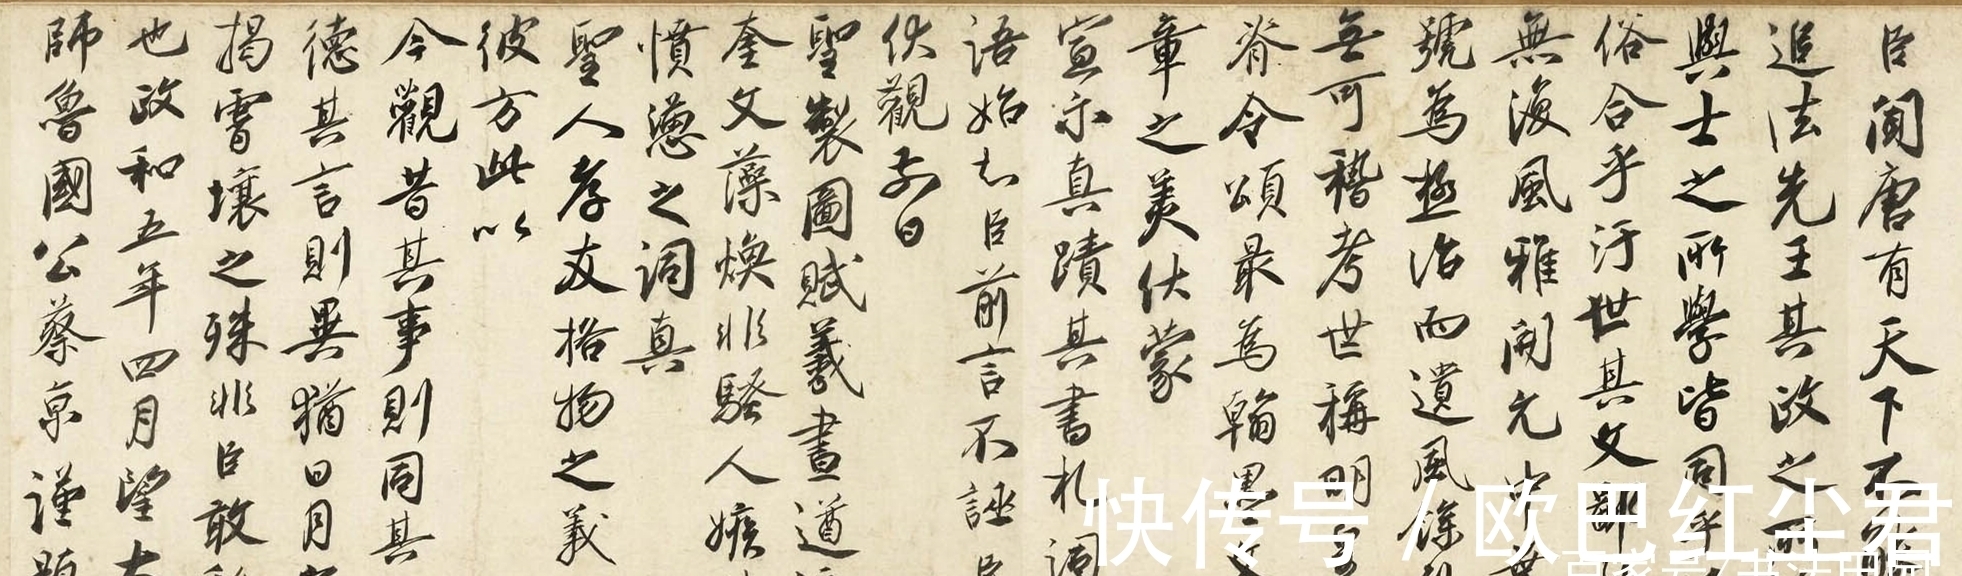 臣聞唐有天下不能
追法先王其政之所
興士之所學皆同乎
俗合乎汙世其文辭
無復風雅開元中
號為極治而遺風餘
無可稽考世稱明皇
脊令頌最為翰墨文
章之美伏蒙
宣示真蹟其書札詞
語始知臣前言不誣臣
伏觀前日
聖製圖賦羲畫遒
奎文藻煥非騷人嫉
憤懣之詞真
聖人孝友格物之義
彼方此以
今觀昔其事則同其
德其言則異猶日月
揭霄壤之殊非臣敢
也政和五年四月望太
師魯國公蔡京謹題
快传号 / 欧巴红尘君